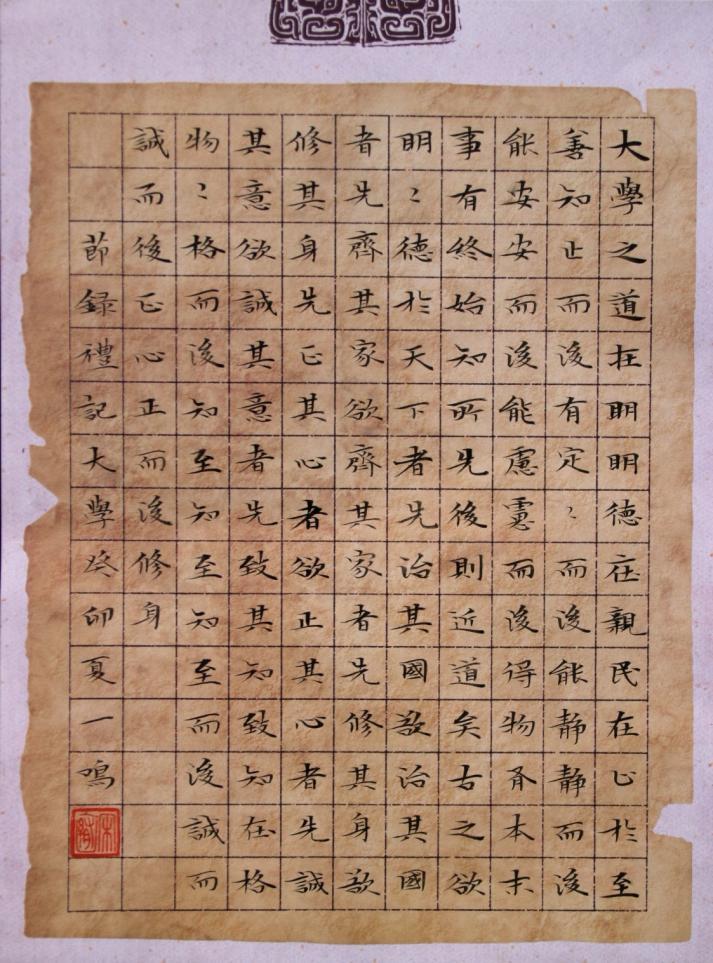 大學之道在明明德在親民在止於至
善知止而後有定〻而後能静静而後
能安安而後能慮慮而後得物有本末
事有終始知所先後則近道矣古之欲
明〻德於天下者先治其國欲治其國
者先齊其家欲齊其家者先修其身欲
修其身先正其心者欲正其心者先誠
其意欲誠其意者先致其知致知在格
物〻格而後知至知至知至而後誠而
誠而後正心正而後修身
節録禮記大學癸卯夏一鳴